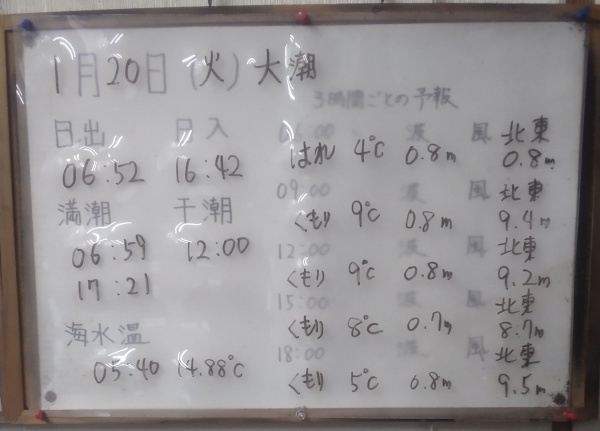 1月20日(火)大潮
3時間ごとの予報
日出 日入
06:52 16:42
満潮 干潮
06:59 12:00
17:21
海水温
05:40 14.88℃
06:00 波 風 北東
はれ 4℃ 0.8m 0.8m
09:00 波 風 北東
くもり 9℃ 0.8m 9.4m
12:00 波 風 北東
くもり 9℃ 0.8m 9.2m
15:00 波 風 北東
くもり 8℃ 0.7m 8.7m
18:00 波 風 北東
くもり 5℃ 0.8m 9.5m